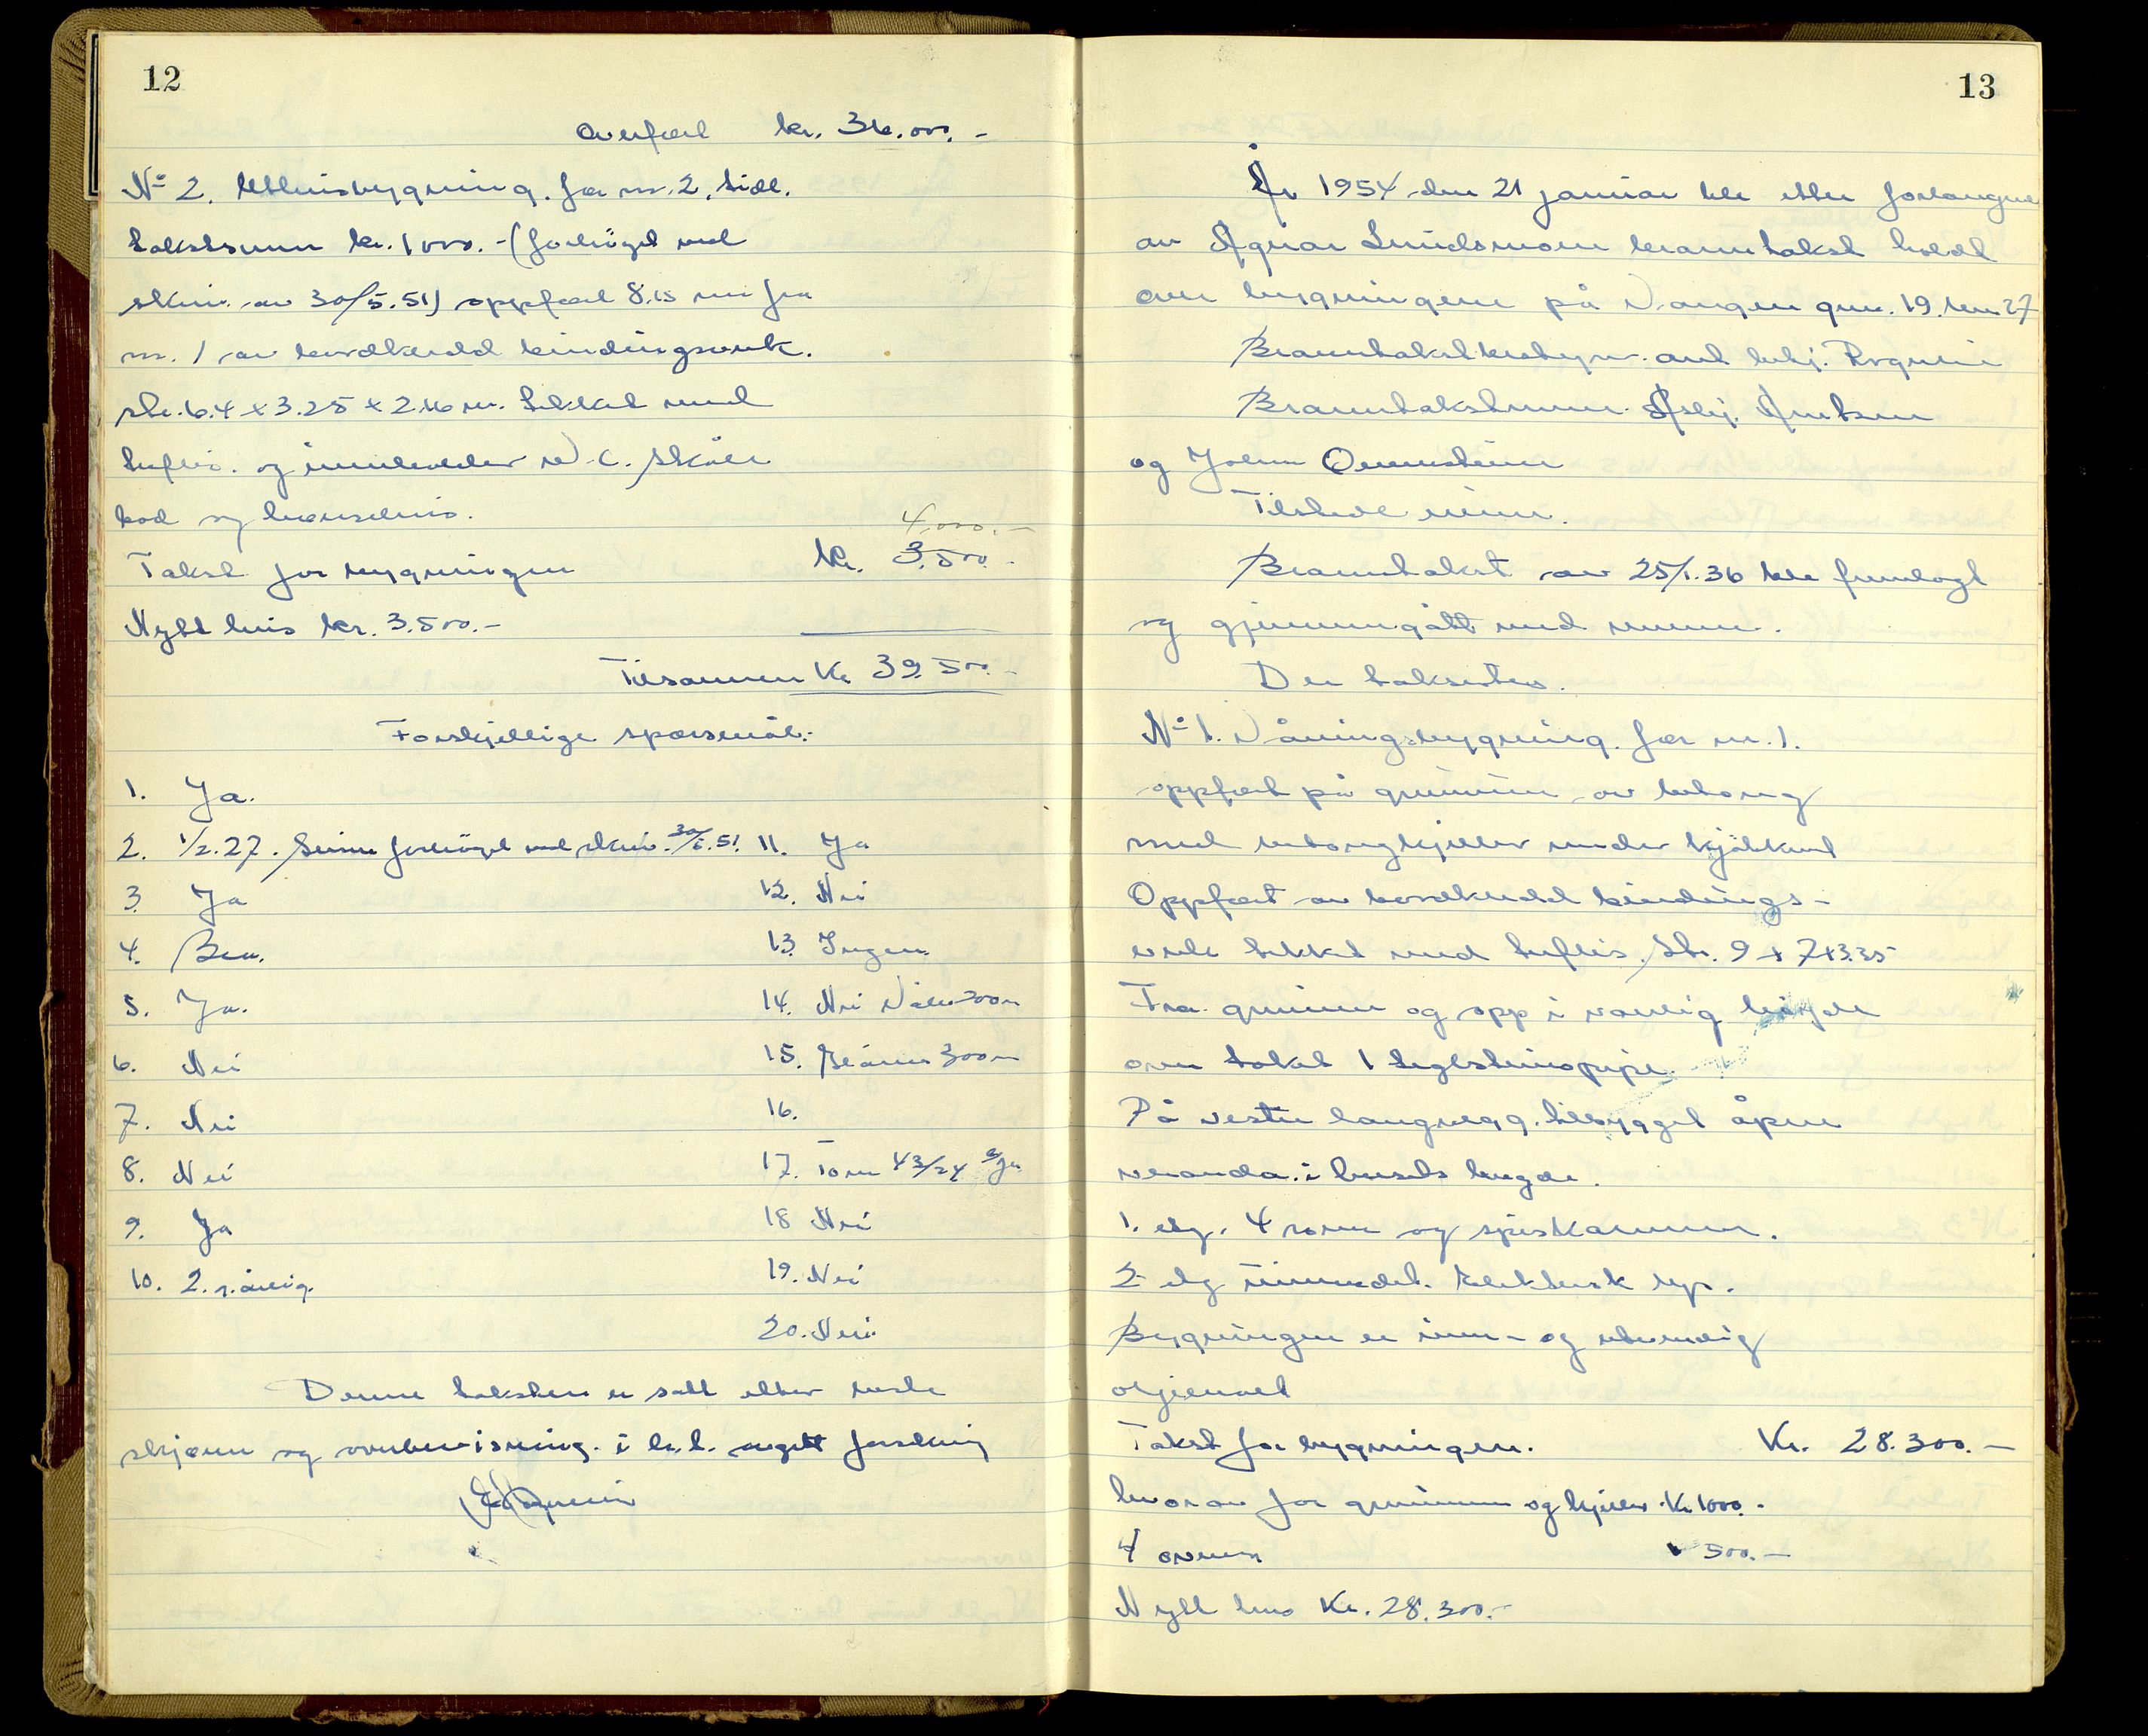 12
Overført kr. 36.000.-
No 2. Uthusbygning. før nr. 2. tidl.
takstsum kr. 1000.- (forhöyet ved
skriv. av 30/5.51) oppført 8.15 m fra
nr. 1 av bordkledd bindingsverk.
str. 6.4 x 3.25 x 2.16 m. tekket med
tuflis. og inneholder W.C. skåle
bod og hönsehus.
4.000.-
Takst for bygningen kr. 3.500.-
Nytt hus kr. 3.500.-
Tilsammen Kr 39.500.-
Forskjellige spørsmål:
1. Ja.
2. 1/2.27. Siden forhöyet ved skriv. 30/5.51. 11. Ja
3. Ja 12. Nei
4. Beb. 13. Ingen.
5. Ja. 14. Nei 200 m
6. Nei 15. 300 m
7. Nei 16.
8. Nei 17. Tom 43/24 Ja
9. Ja 18 Nei
10. 2. g. årlig. 19. Nei
20. Nei.
Denne taksten er satt etter beste
skjønn og overbevisning. i h.t. avgitt forsikring
13
År 1954 den 21 januar ble etter forlangende
av Agnar branntakst holdt
over bygningene på Vangen gnr. 19. bnr 27
Branntakstbestyrer. ant. lensm. Rognli
Branntakstmenn. Asbj. Arntsen
og Johan
Tilstede eieren.
Branntakst av 25/1.36 ble fremlagt
og gjennemgått med eieren.
Der taksertes.
No 1. Våningsbygning. før nr. 1.
oppført på grunnmur av betong
med betongkjeller under kjökkenet
Oppført av bordkledd bindings-
verk tekket med tuflis. Str. 9 x 7 x 3.35
Fra grunnen og opp i vanlig höyde
over taket 1 teglsteinspipe
På vestre langvegg. tilbygget åpen
veranda. i husets lengde.
1. etg. 4 rom og spiskammer.
2 etg uinnredet. Elektrisk lys.
Bygningen er inn- og utvendig
oljemalt
Takst for bygningen. Kr. 28.300.-
hvorav for grunnmur og kjeller Kr 1000.-
4 ovner " 500.-
Nytt hus Kr. 28.300.-